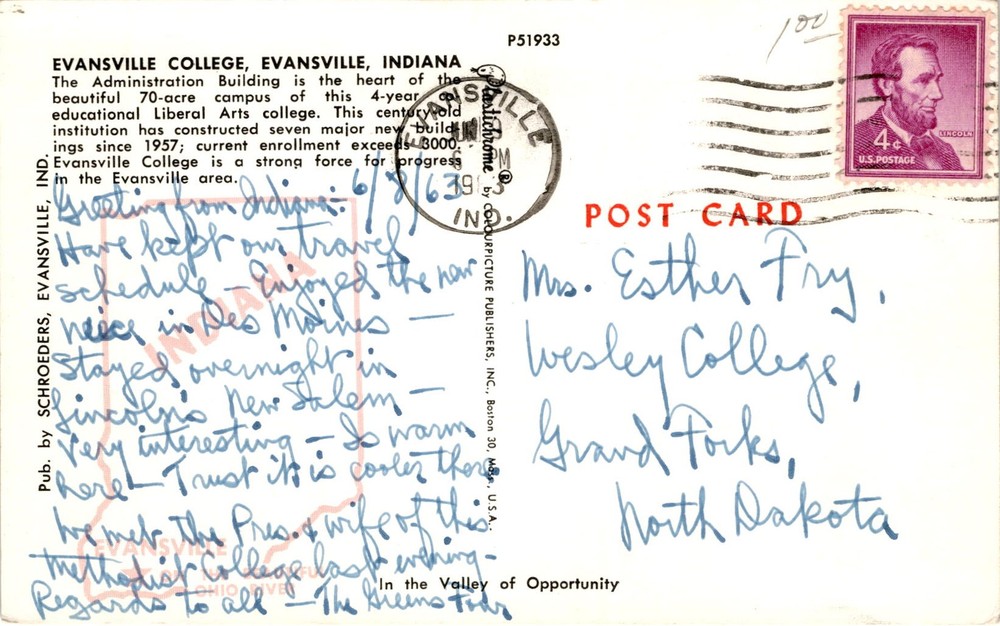 P51933
1.00
EVANSVILLE COLLEGE, EVANSVILLE, INDIANA
The Administration Building is the heart of the
beautiful 70-acre campus of this 4-year co-
educational Liberal Arts college. This century old
institution has constructed seven major new build-
ings since 1957; current enrollment exceeds 3000.
Evansville College is a strong force for progress
in the Evansville area.
Pub. by SCHROEDERS, EVANSVILLE, IND.
Greeting from Indiana - 6/8/63
Have kept our travel
schedule - Enjoyed the new
niece in Des Moines —
Stayed overnight in
Lincoln's New Salem —
Very interesting - Is warm
here — Trust it is cooler there
We met the Pres. & wife of this
Methodist College last evening -
Regards to all — The Greens Four
INDIANA
EVANSVILLE
OHIO RIVER
Plastichrome ® by COLOURPICTURE PUBLISHERS, INC., Boston 30, Mass., U.S.A.
EVANSVILLE
PM
1963
IND.
4¢
LINCOLN
U.S. POSTAGE
POST CARD
Mrs. Esther Fry,
Wesley College,
Grand Forks,
North Dakota
In the Valley of Opportunity